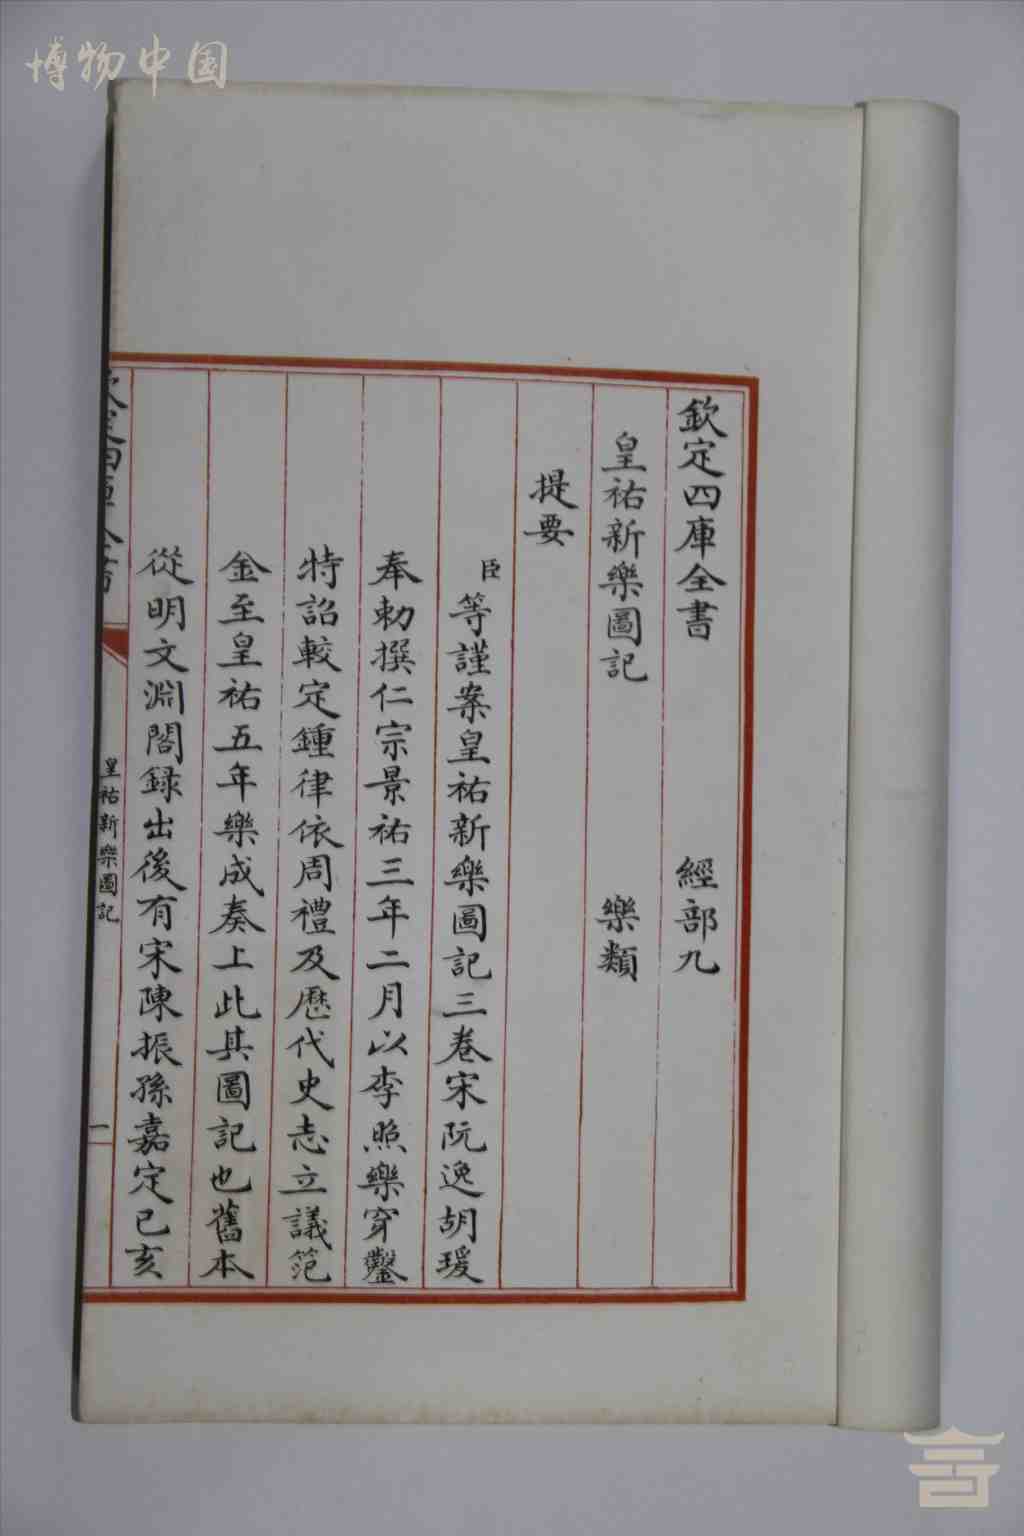 博物中国
欽定四庫全書 經部九
皇祐新樂圖記 樂類
提要
臣等謹案皇祐新樂圖記三卷宋阮逸胡瑗
奉勅撰仁宗景祐三年二月以李照樂穿鑿
特詔較定鍾律依周禮及歷代史志立議範
金至皇祐五年樂成奏上此其圖記也舊本
從明文淵閣録出後有宋陳振孫嘉定己亥
欽定四庫全書
皇祐新樂圖記
一